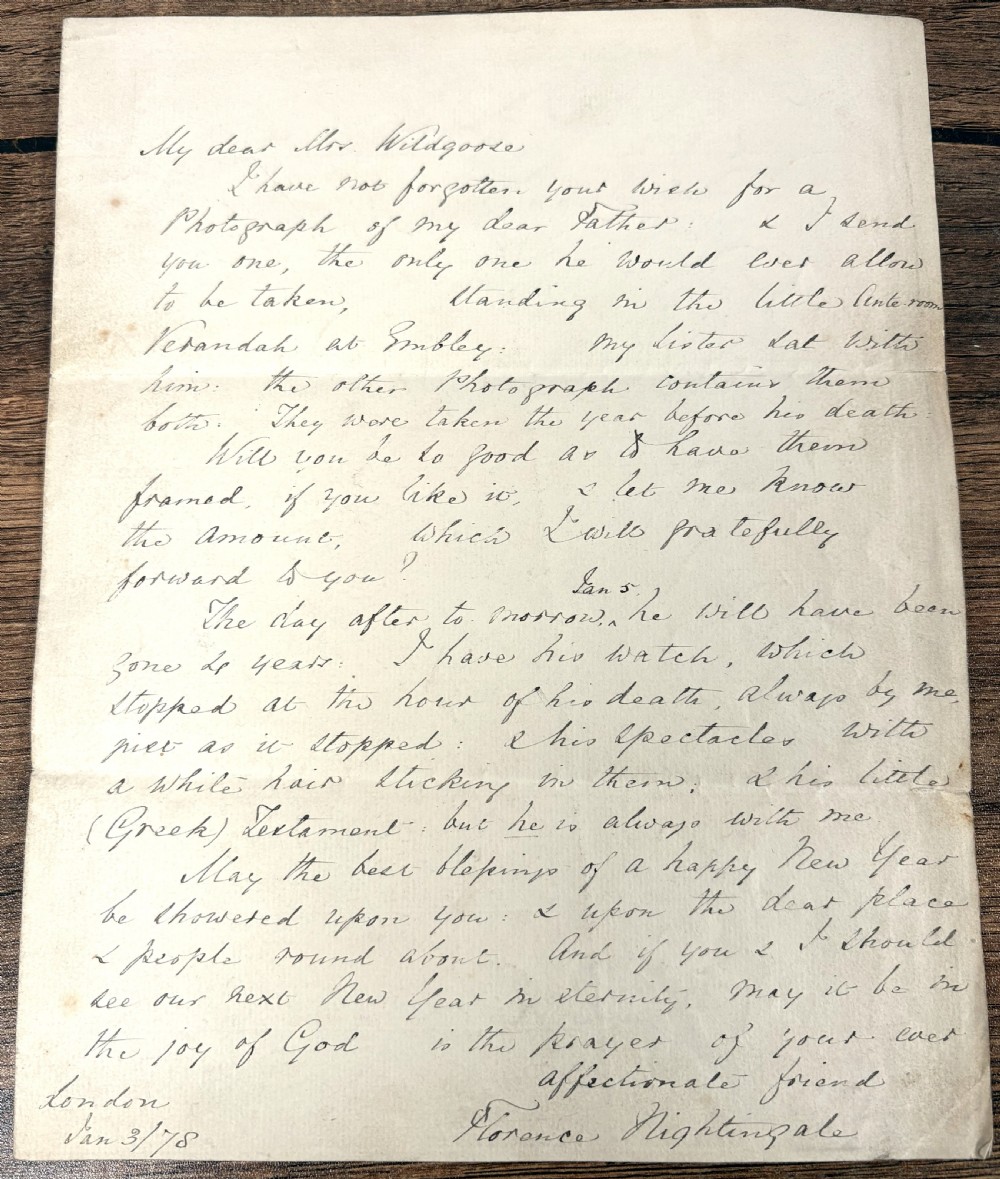 My dear Mrs. Wildgoose
I have not forgotten your wish for a
Photograph of my dear Father: & I send
you one, the only one he would ever allow
to be taken, standing in the little Ante-room
Verandah at Embley: my sister sat with
him: the other Photograph contains them
both: They were taken the year before his death:
Will you be so good as to have them
framed, if you like it, & let me know
the amount, which I will gratefully
forward to you?
Jan 5.
The day after to-morrow, ^ he will have been
gone 4 years: I have his watch, which
stopped at the hour of his death, always by me,
just as it stopped: & his spectacles with
a white hair sticking in them: & his little
(Greek) Testament: but he is always with me
May the best blessings of a happy New Year
be showered upon you: & upon the dear place
& people round about. And if you & I should
see our next New Year in eternity, may it be in
the joy of God is the prayer of your ever
affectionate friend
Florence Nightingale
London
Jan 3/78